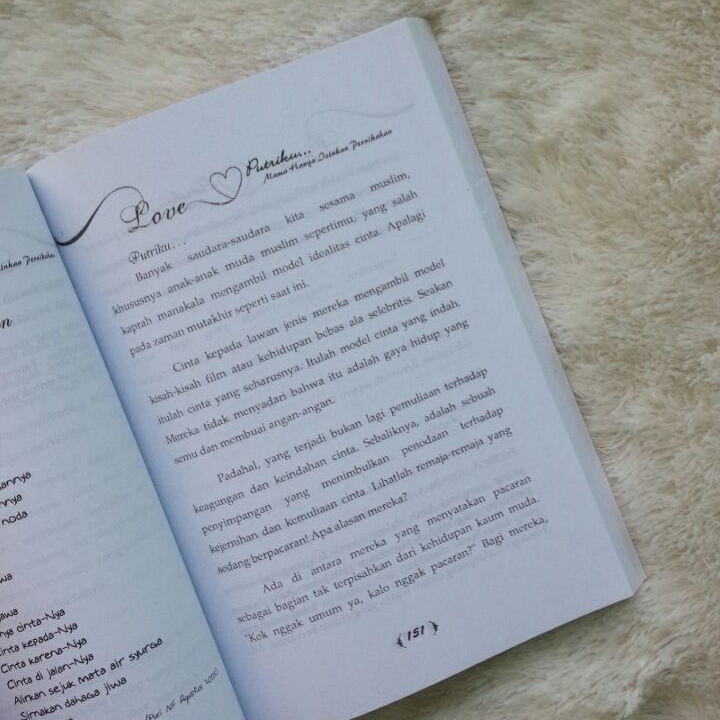 Pernikahan
annya
nnya
noda
wa
awa
nya cinta-Nya
Cinta kepada-Nya
Cinta karena-Nya
Cinta di jalan-Nya
Alirkan sejuk mata air syurga
Sirnakan dahaga jiwa
Love Putriku...
Mama Hanya Izinkan Pernikahan
Putriku...
Banyak saudara-saudara kita sesama muslim,
khususnya anak-anak muda muslim sepertimu, yang salah
kaprah manakala mengambil model idealitas cinta. Apalagi
pada zaman mutakhir seperti saat ini.
Cinta kepada lawan jenis mereka mengambil model
kisah-kisah film atau kehidupan bebas ala selebritis. Seakan
itulah cinta yang seharusnya. Itulah model cinta yang indah.
Mereka tidak menyadari bahwa itu adalah gaya hidup yang
semu dan membuai angan-angan.
Padahal, yang terjadi bukan lagi pemuliaan terhadap
keagungan dan keindahan cinta. Sebaliknya, adalah sebuah
penyimpangan yang menimbulkan penodaan terhadap
kejernihan dan kemuliaan cinta. Lihatlah remaja-remaja yang
sedang berpacaran! Apa alasan mereka?
Ada di antara mereka yang menyatakan pacaran
sebagai bagian tak terpisahkan dari kehidupan kaum muda.
"Kok nggak umum ya, kalo nggak pacaran?" Bagi mereka,
151